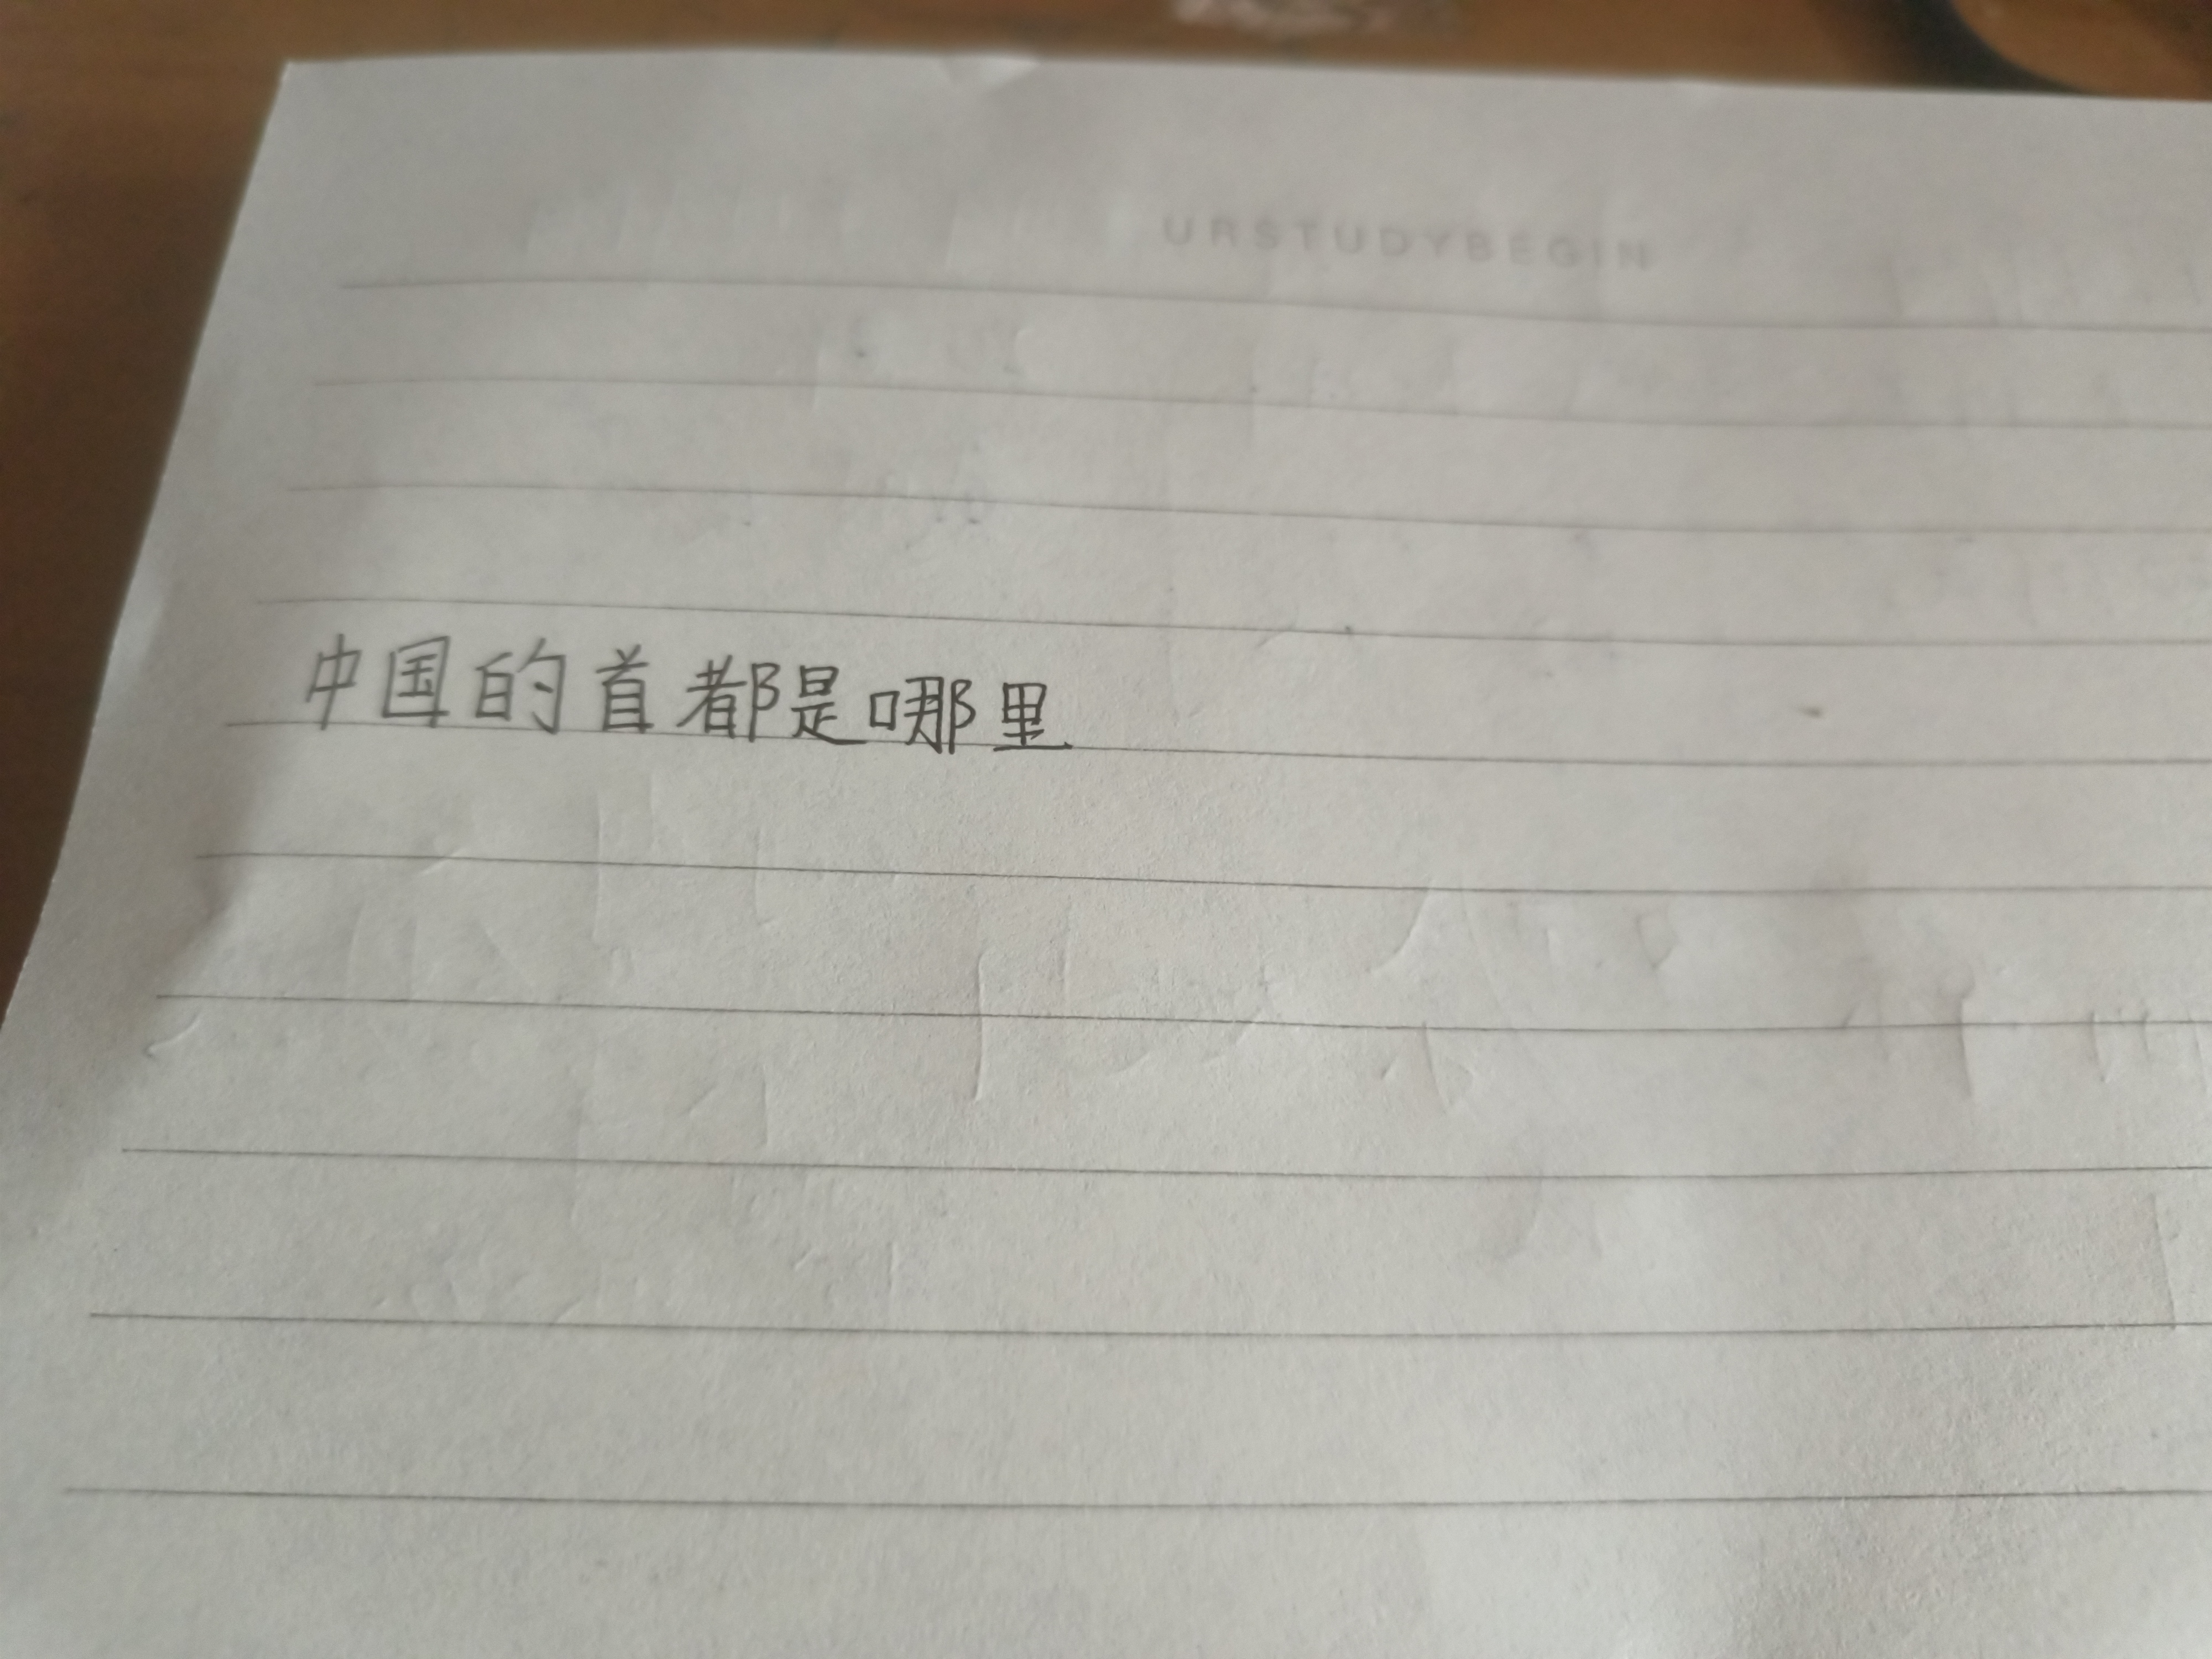 URSTUDYBEGIN
中国的首都是哪里